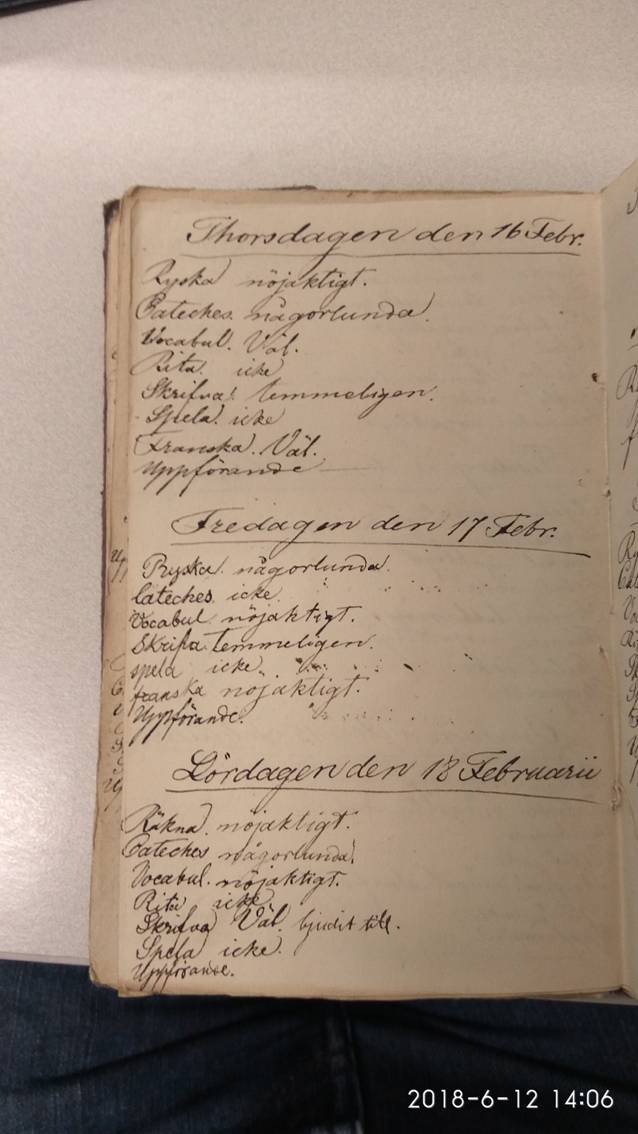 Thorsdagen den 16 Febr.
Ryska nöjaktigt.
Cateches. någorlunda.
Vocabul. Väl.
Rita. icke
Skrifva. temmeligen.
Spela. icke
Franska. Väl.
Uppförande
Fredagen den 17 Febr.
Ryska. någorlunda.
Cateches. icke.
Vocabul nöjaktigt.
Skrifva temmeligen.
spela icke.
franska nöjaktigt.
Uppförande.
Lördagen den 18 Februarii
Räkna. nöjaktigt.
Cateches någorlunda.
Vocabul. nöjaktigt.
Rita icke.
Skrifva Väl. bjudit till.
Spela icke.
Uppförande.
2018-6-12 14:06